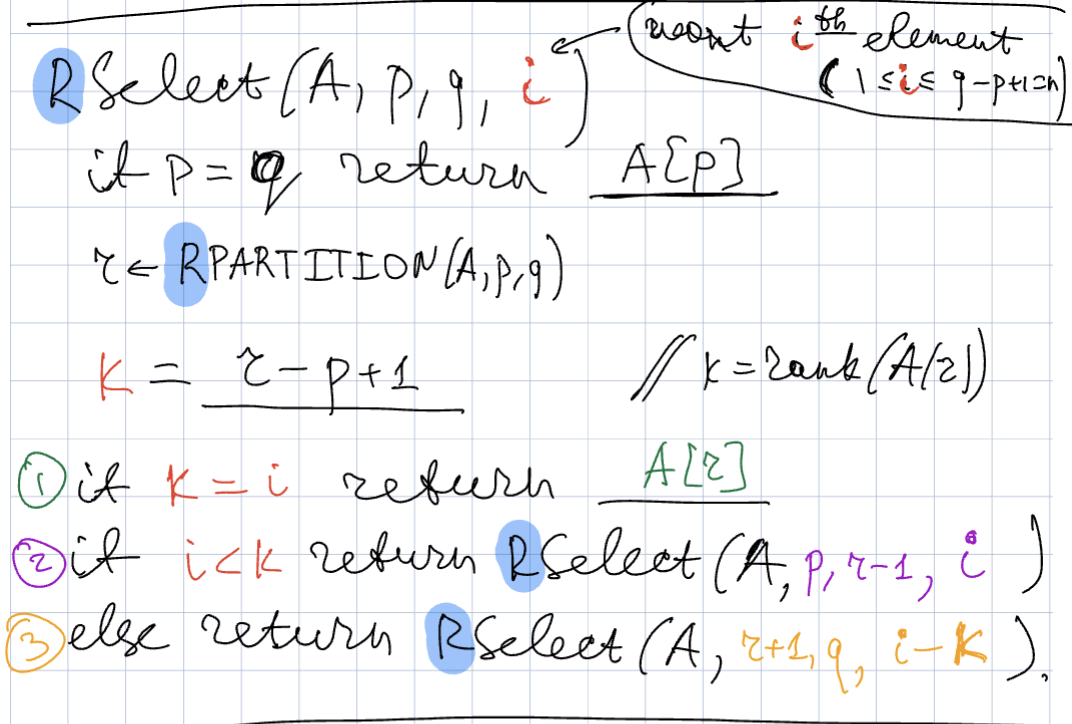 want i th element
(1 ≤ i ≤ q-p+1=n)
RSelect(A, p, q, i)
if p = q return A[p]
r ← RPARTITION(A, p, q)
k = r - p + 1 // k = rank(A[r])
① if k = i return A[r]
② if i < k return RSelect(A, p, r-1, i)
③ else return RSelect(A, r+1, q, i-k).